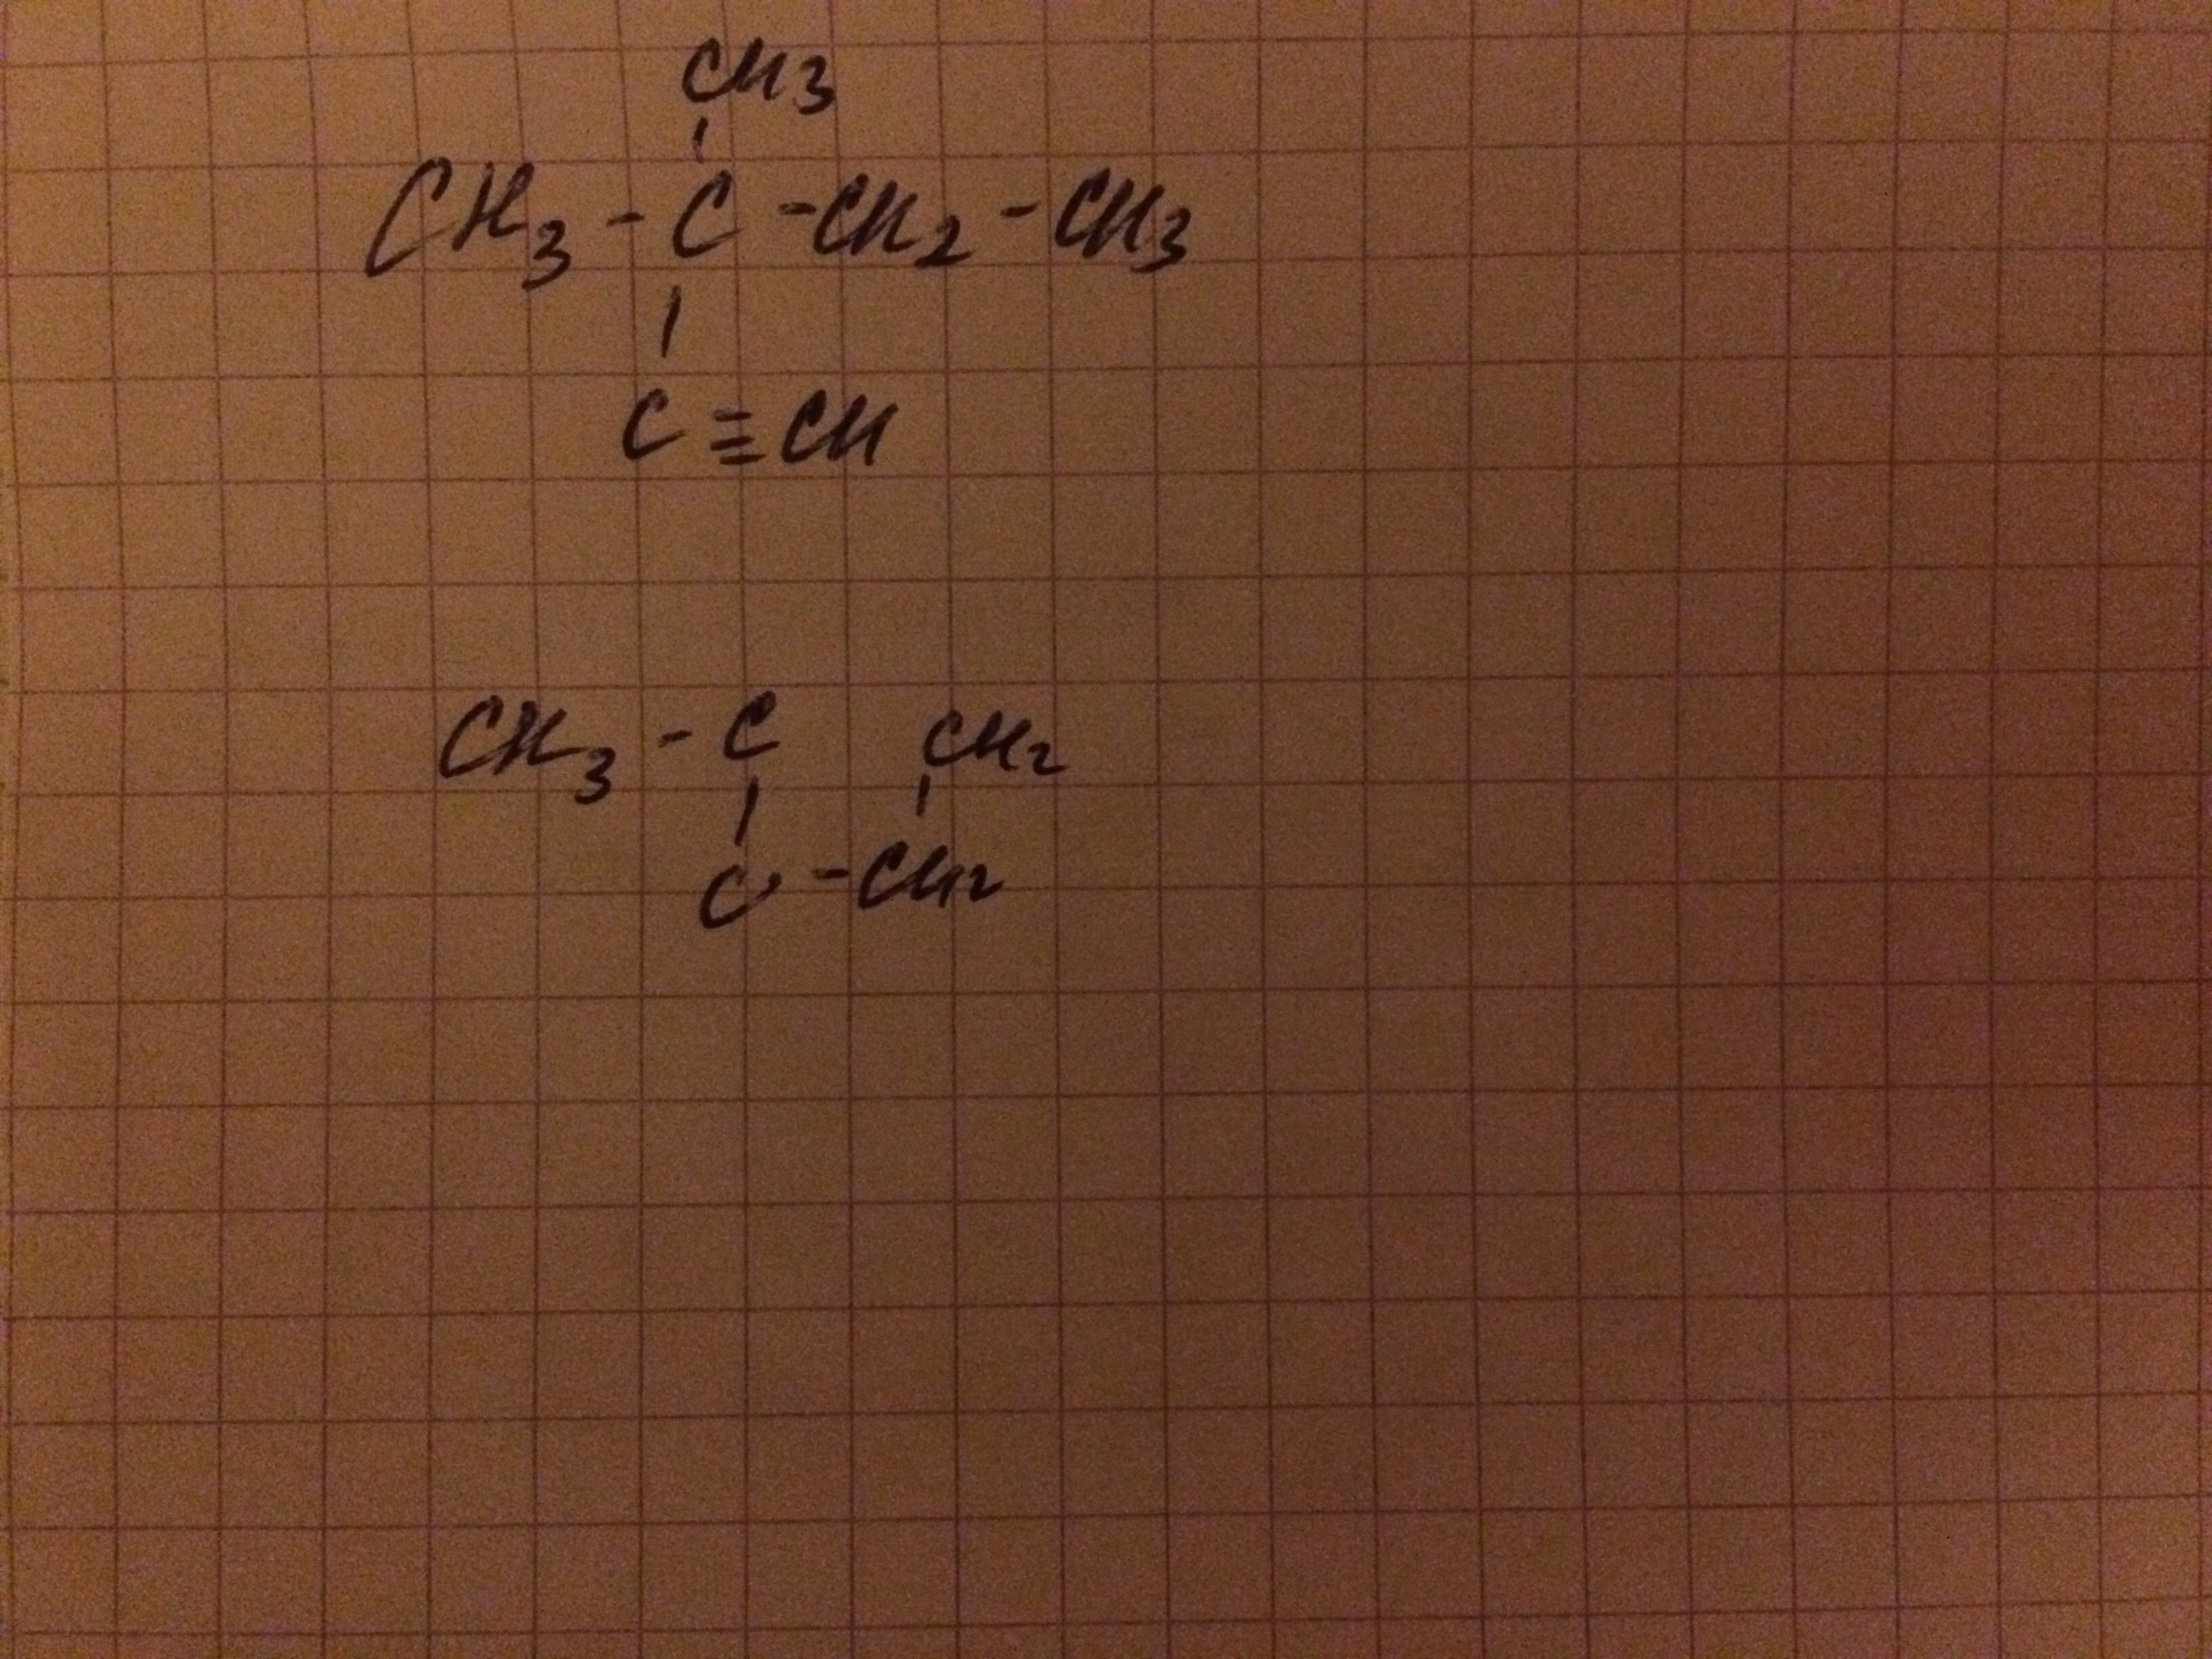 CH3
CH3 - C - CH2 - CH3
C ≡ CH
CH3 - C CH2
C - CH2